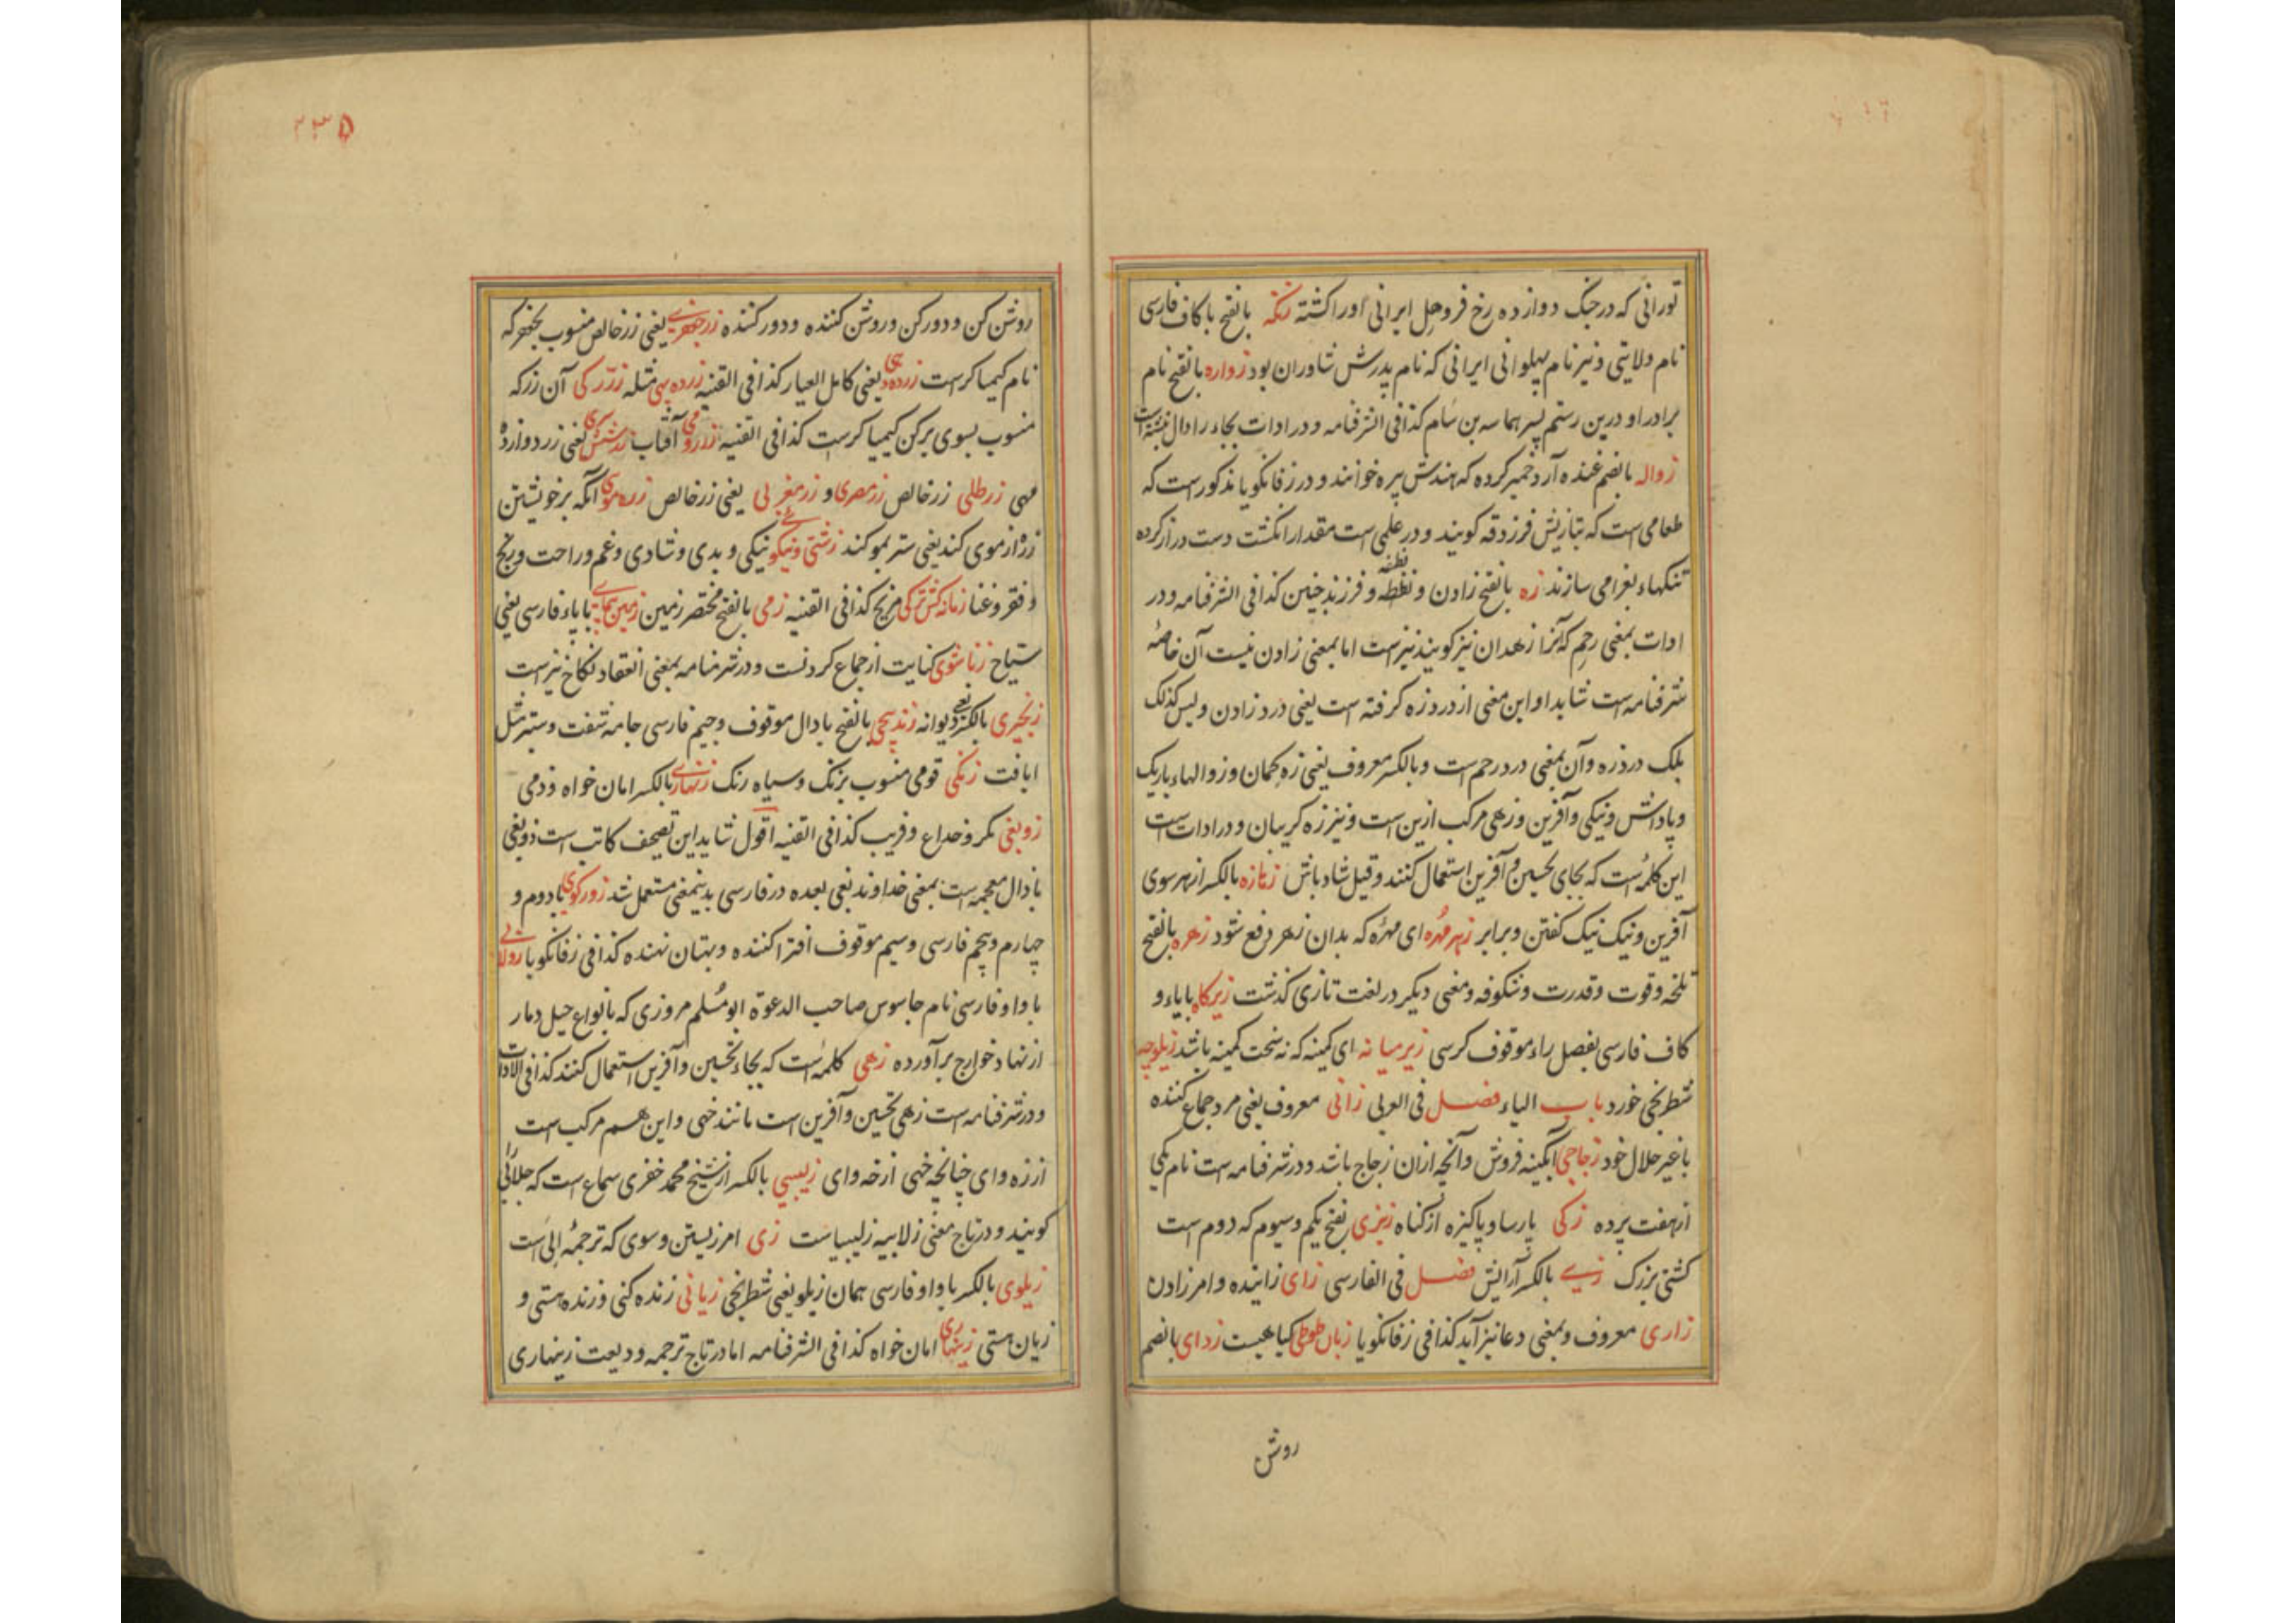 تورانی که در جنک دوازده رخ فروهل ایرانی اورا کشته زنکه بالفتح با کاف فارسی
نام ولایتی و نیز نام پهلوانی ایرانی که نام پدرش شاوران بود زواره بالفتح نام
برادر او درین رستم پسر هما سه بن سام کذا فی الشرفنامه و در ادات بجاء را دال نبشته است
زواله بالضم غنده آرد خمیر کرده که هندش پیره خوانند و در زفانکویا مذکور است که
طعامی است که بتازیش فرزدقه کویند و در علمی است مقدار انکشت دست دراز کرده
تنکهاء بغرا می سازند زه بالفتح زادن و نطفه و فرزند جنین کذا فی الشرفنامه و در
ادات بمعنی رحم که آنرا زهدان نیز کویند نیز است اما بمعنی زادن نیست آن خاصهٔ
شرفنامه است شاید او این معنی از درد زه کرفته است یعنی درد زادن و لیس کذلک
بلک درد زه و آن بمعنی درد رحم است و بالکسر معروف یعنی زه کمان و زوالهاء باریک
و پاداش و نیکی و آفرین و زهی مرکب ازین است و نیز زه کریبان و در ادات است
این کلمه است که بجای تحسین و آفرین استعمال کنند و قیل شاد باش زهازه بالکسر از هر سوی
آفرین و نیک نیک کفتن و برابر زهر مهره ای مهره که بدان زهر دفع شود زهره بالفتح
تلخه و قوت و قدرت و شکوفه و معنی دیکر در لغت تازی کذشت زیرکاه با یاء و
کاف فارسی بفصل راء موقوف کرسی زیر میانه ای کمینه که نه سخت کمینه باشد زیلوچه
شطرنجی خورد باب الیاء فصل فی العربی زانی معروف یعنی مرد جماع کننده
با غیر حلال خود زجاجی آبکینه فروش و آنچه ازان زجاج باشد و در شرفنامه است نام یکی
از هفت پرده زکی پارسا و پاکیزه از کناه زنبری بفتح یکم و سیوم که دوم است
کشتی بزرک زی بالکسر آرایش فصل فی الفارسی زای زاینده و امر زادن
زاری معروف و بمعنی دعا نیز آید کذا فی زفانکویا زبان طوطی کیاهیست زدای بالضم
روش
۲۳۵
روشن کن و دور کن و روشن کننده و دور کننده زر جعفری یعنی زر خالص منسوب بجعفر که
نام کیمیا کر است زر ده دهی یعنی کامل العیار کذا فی القنیه زر ده پنجی مثله زر رکی آن زر که
منسوب بسوی برکن کیمیا کر است کذا فی القنیه زر رومی آفتاب زر شش سری یعنی زر دوازده
مهی زر طلی زر خالص زر مصری و زر مغربی یعنی زر خالص زره موی آنکه بر خویشتن
زره از موی کند یعنی ستر بمو کند زشتی و نیکوئی نیکی و بدی و شادی و غم و راحت و رنج
و فقر و غنا زمانه کش ترکی مریخ کذا فی القنیه زمی بالفتح مختصر زمین زمین پیمای با یاء فارسی یعنی
سیاح زناشوی کنایت از جماع کردنست و در شرفنامه بمعنی انعقاد نکاح نیز است
زنجیری بالکسر یعنی دیوانه زندپیچی بالفتح با دال موقوف و جیم فارسی جامه شفت و ستبر مثل
ابافت زنکی قومی منسوب بزنک و سیاه رنک زنهاری بالکسر امان خواه و ذمی
زوبغی مکر و خداع و فریب کذا فی القنیه اقول شاید این تصحیف کاتب است ذوبغی
با ذال معجمه است بمعنی خداوند بغی بعده در فارسی بدینمعنی مستعمل شد زور کوی با دوم و
چهارم و پنجم فارسی و سیم موقوف افترا کننده و بهتان نهنده کذا فی زفانکویا زولابی
با واو فارسی نام جاسوس صاحب الدعوة ابو مسلم مروزی که بانواع حیل دمار
از نهاد خوارج برآورده زهی کلمه است که بجاء تحسین و آفرین استعمال کنند کذا فی الادات
و در شرفنامه است زهی تحسین و آفرین است مانند خهی و این هم مرکب است
از زه و ای چنانچه خهی از خه و ای زلیبی بالکسر از شیخ محمد خفری سماع است که جلابی را
کویند و در تاج معنی زلابیه زلیبیا است زی امر زیستن و سوی که ترجمهٔ الی است
زیلوی بالکسر با واو فارسی همان زیلو یعنی شطرنجی زیانی زنده کنی و زنده هستی و
زیان هستی زینهاری امان خواه کذا فی الشرفنامه اما در تاج ترجمه ودیعت زینهاری